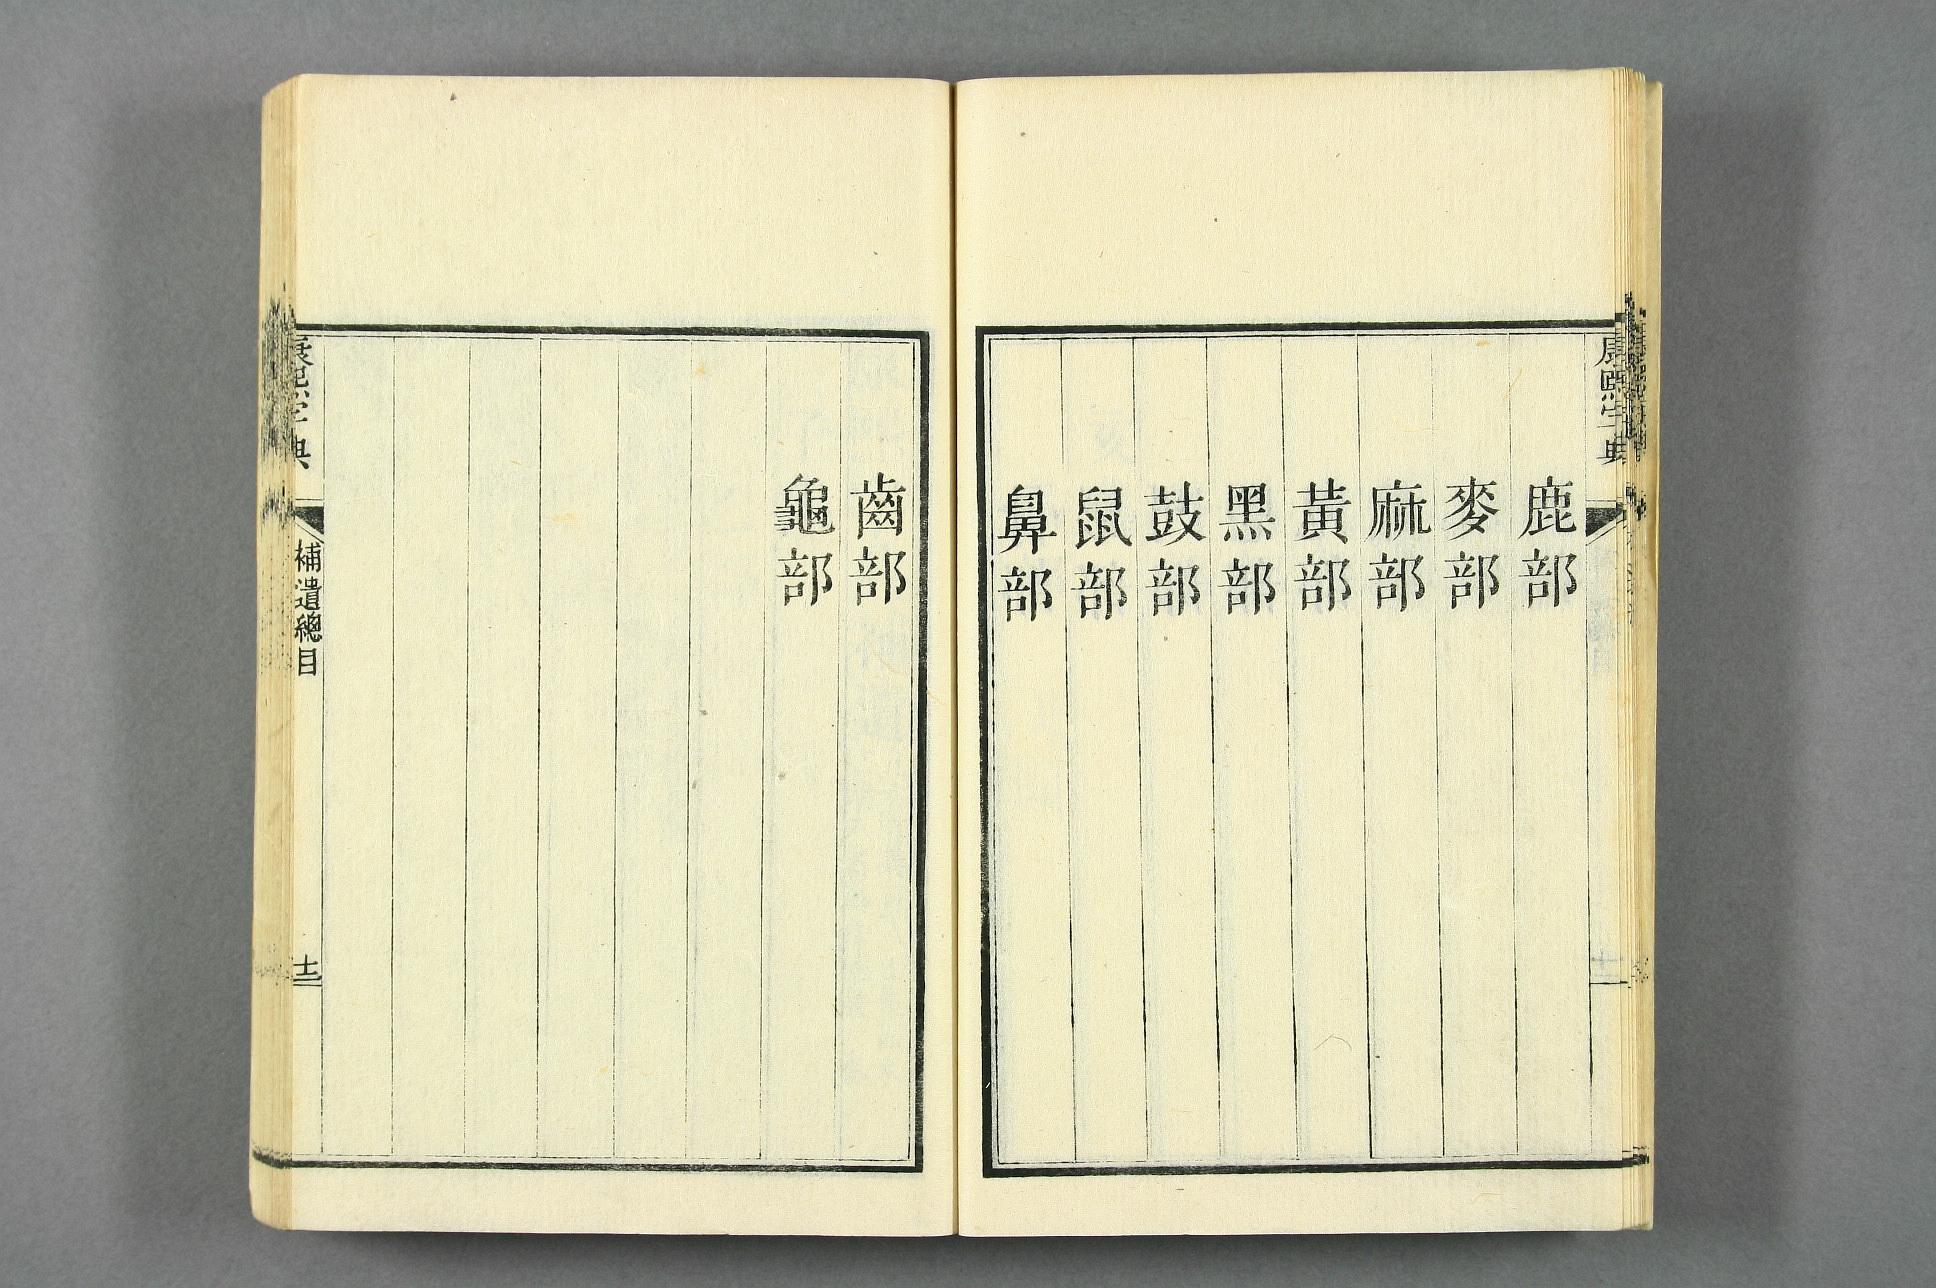 康熙字典
鹿部
麥部
麻部
黃部
黑部
鼓部
鼠部
鼻部
齒部
龜部
康熙字典
補遺總目
十二